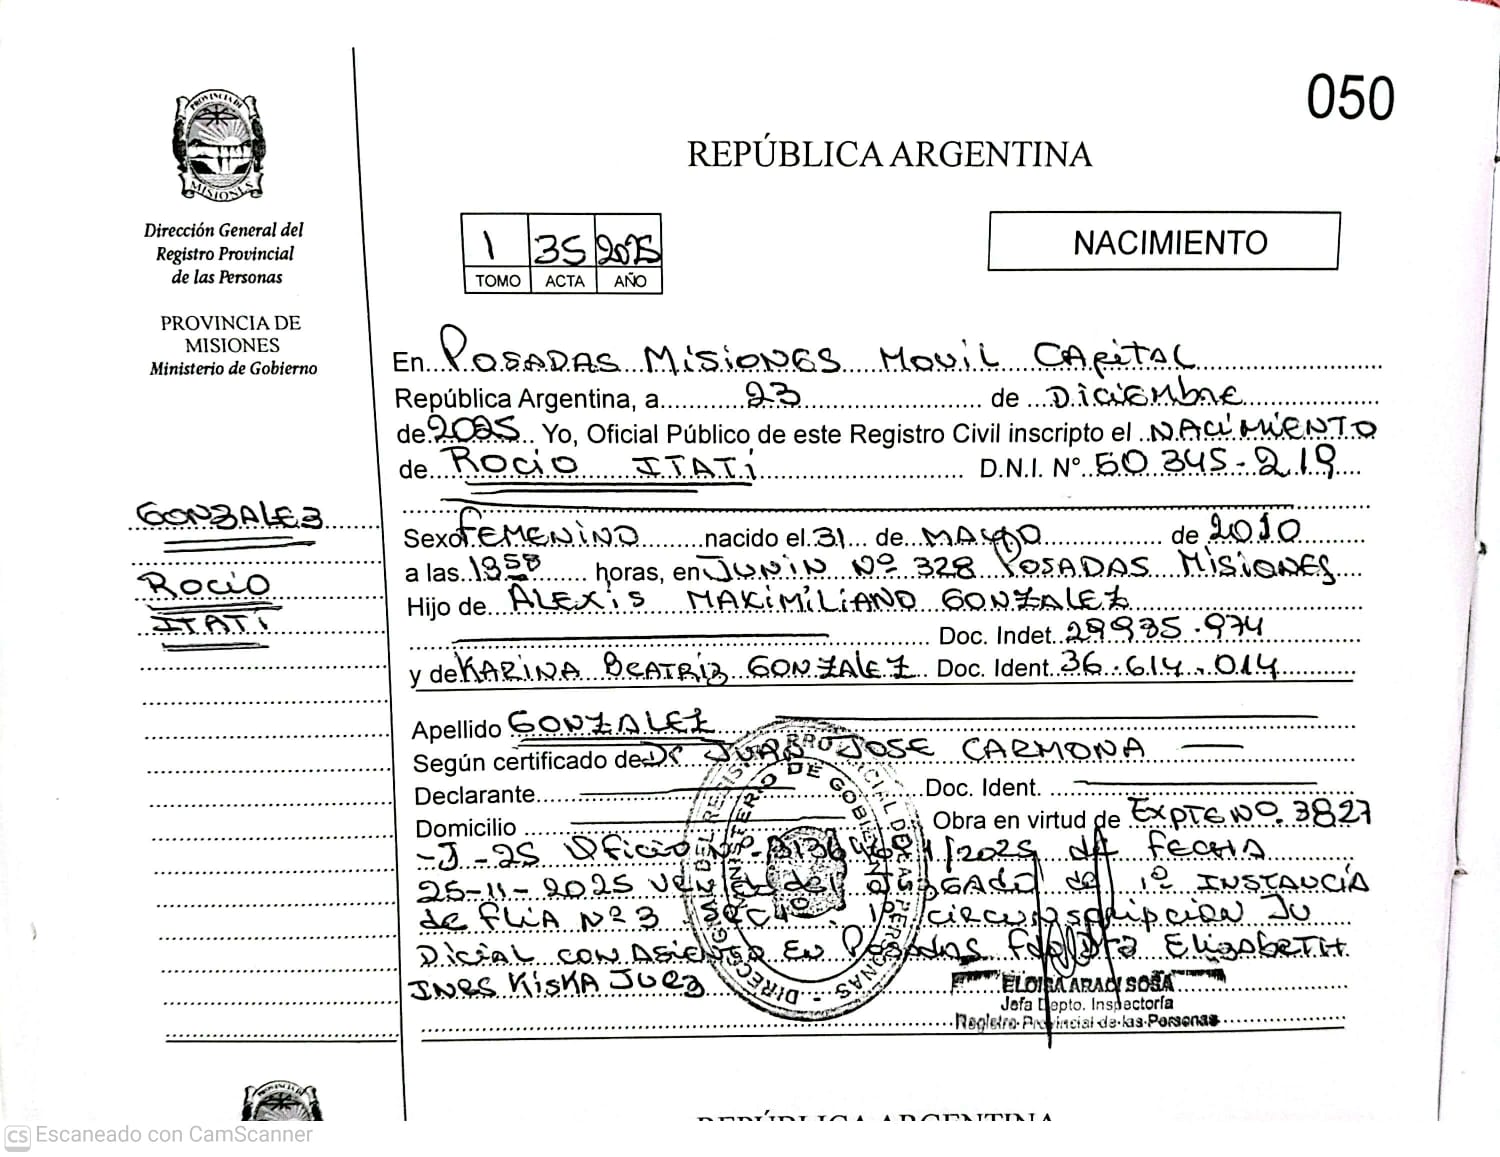 050
REPÚBLICA ARGENTINA
PROVINCIA DE
MISIONES
Dirección General del
Registro Provincial
de las Personas
PROVINCIA DE
MISIONES
Ministerio de Gobierno
1 35 2025
TOMO ACTA AÑO
NACIMIENTO
En POSADAS MISIONES MOVIL CAPITAL
República Argentina, a 23 de DICIEMBRE
de 2025 Yo, Oficial Público de este Registro Civil inscripto el NACIMIENTO
de ROCIO ITATI D.N.I. Nº 50.345-219
GONZALEZ
ROCIO
ITATI
Sexo FEMENINO nacido el 31 de MAYO de 2010
a las 1358 horas, en JUNIN Nº 328 POSADAS MISIONES
Hijo de ALEXIS MAXIMILIANO GONZALEZ
Doc. Indet. 29935.974
y de KARINA BEATRIZ GONZALEZ Doc. Ident. 36.614.014
Apellido GONZALEZ
Según certificado de Dr JUAN JOSE CARMONA
Declarante Doc. Ident.
Domicilio Obra en virtud de EXPTE Nº. 3827
-J-25 OFICIO /2025 de FECHA
25-11-2025 del de 1º INSTANCIA
de FLIA Nº3 CIRCUNSCRIPCION JU
DICIAL CON ASIENTO EN POSADAS Fdo Dra ELIZABETH
INES KISKA JUEZ
ELOISA ARACI SOSA
Jefa Depto. Inspectoría
Registro Provincial de las Personas
REPÚBLICA ARGENTINA
CS Escaneado con CamScanner